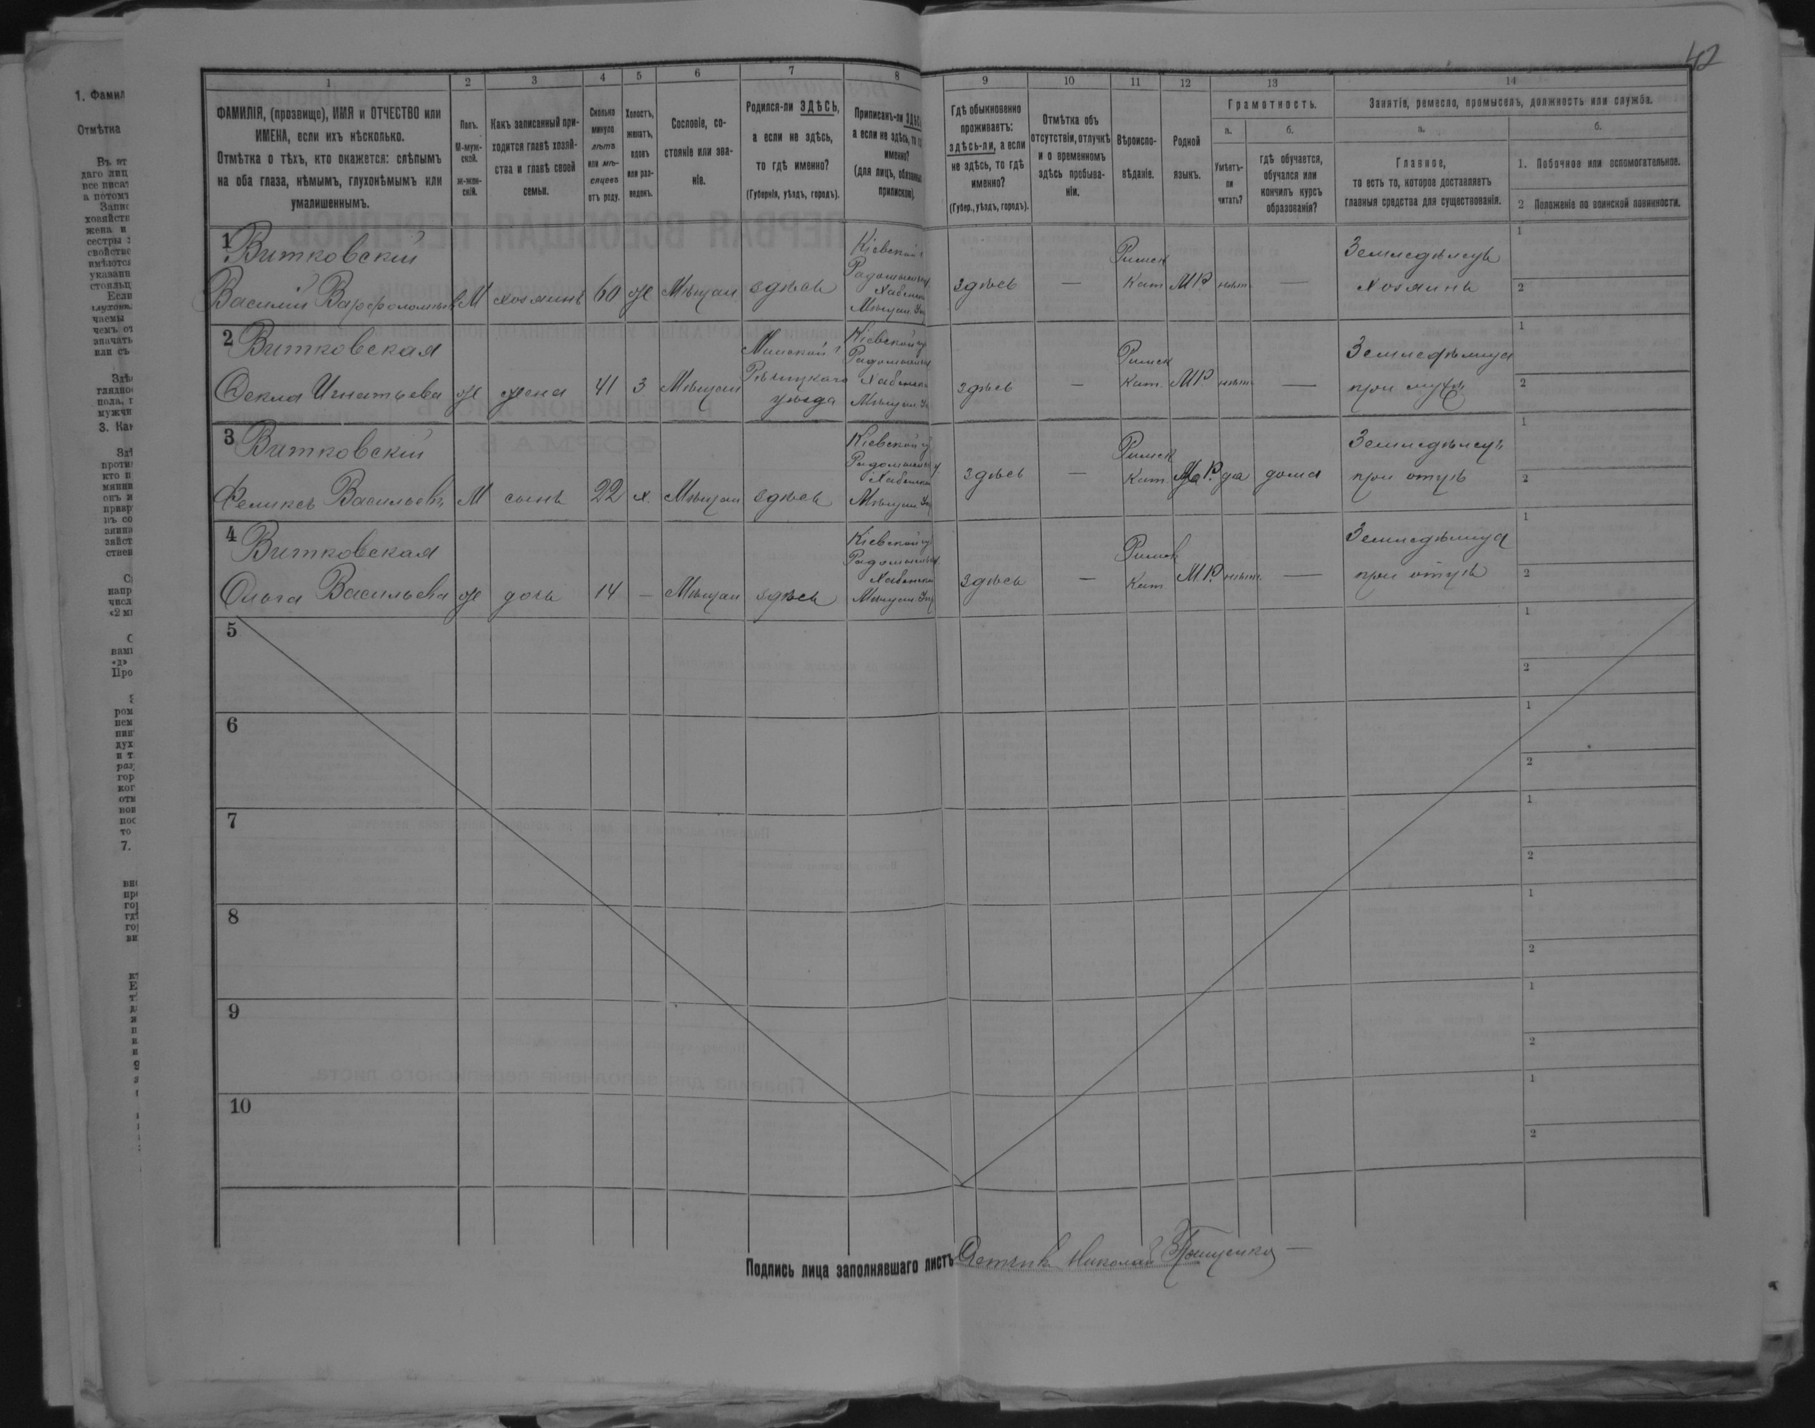 42
1 2 3 4 5 6 7 8 9 10 11 12 13 14
ФАМИЛІЯ, (прозвище), ИМЯ и ОТЧЕСТВО или
ИМЕНА, если ихъ нѣсколько.
Отмѣтка о тѣхъ, кто окажется: слѣпымъ
на оба глаза, нѣмымъ, глухонѣмымъ или
умалишеннымъ.
Полъ.
М-муж-
ской.
ж-жен-
скій.
Какъ записанный при-
ходится главѣ хозяй-
ства и главѣ своей
семьи.
Сколько
минуло
лѣтъ
или мѣ-
сяцевъ
отъ роду.
Холостъ,
женатъ,
вдовъ
или раз-
веденъ.
Сословіе, со-
стояніе или зва-
ніе.
Родился-ли ЗДѢСЬ,
а если не здѣсь,
то гдѣ именно?
(Губернія, уѣздъ, городъ).
Приписанъ-ли ЗДѢСЬ,
а если не здѣсь, то гдѣ
именно?
(для лицъ, обязанныхъ
припискою).
Гдѣ обыкновенно
проживаетъ:
здѣсь-ли, а если
не здѣсь, то гдѣ
именно?
(Губер., уѣздъ, городъ).
Отмѣтка объ
отсутствіи, отлучкѣ
и о временномъ
здѣсь пребыва-
ніи.
Вѣроиспо-
вѣданіе.
Родной
языкъ.
Грамотность.
а.
Умѣетъ-
ли
читать?
б.
гдѣ обучается,
обучался или
кончилъ курсъ
образованія?
Занятіе, ремесло, промыселъ, должность или служба.
а.
Главное,
то есть то, которое доставляетъ
главныя средства для существованія.
б.
1. Побочное или вспомогательное.
2 Положеніе по воинской повинности.
1 Витковскій
Василій Варфоломѣевъ М хозяинъ 60 ж Мѣщан здѣсь
Кіевской г
Радомысльск
Хабенск
Мѣщан Уп
здѣсь —
Римск
Кат М.Р. нѣтъ —
Земледѣлецъ
Хозяинъ
1
2
2 Витковская
Фекла Игнатьева ж жена 41 з Мѣщан
Минской г
Рѣчицкаго
уѣзда
Кіевской г
Радомысльск
Хабенск
Мѣщан Уп
здѣсь —
Римск
Кат. М.Р. нѣтъ —
Земледѣлица
при мужѣ
1
2
3 Витковскій
Феликсъ Васильевъ М сынъ 22 х. Мѣщан здѣсь
Кіевской г
Радомысльск
Хабенск
Мѣщан Уп
здѣсь —
Римск
Кат М.Р. да дома
Земледѣлецъ
при отцѣ
1
2
4 Витковская
Ольга Васильева ж дочь 14 — Мѣщан здѣсь
Кіевской г
Радомысльск
Хабенск
Мѣщан Уп
здѣсь —
Римск
Кат М.Р. нѣтъ —
Земледѣлица
при отцѣ
1
2
5
1
2
6
1
2
7
1
2
8
1
2
9
1
2
10
1
2
Подпись лица заполнявшаго листъ Счетчикъ Николай